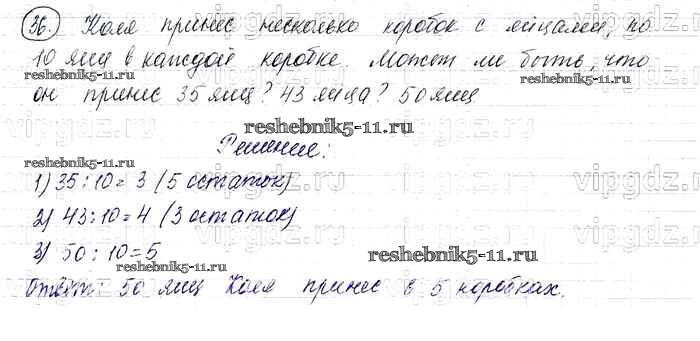 36. Коля принес несколько коробок с яйцами, по
10 яиц в каждой коробке. Может ли быть, что
reshebnik5-11.ru reshebnik5-11.ru
он принес 35 яиц? 43 яйца? 50 яиц
vipgdz.ru vipgdz.ru
reshebnik5-11.ru
Решение:
reshebnik5-11.ru
1) 35:10=3 (5 остаток)
2) 43:10=4 (3 остаток)
vipgdz.ru vipgdz.ru
3) 50:10=5
reshebnik5-11.ru reshebnik5-11.ru
Ответ: 50 яиц Коля принес в 5 коробках.